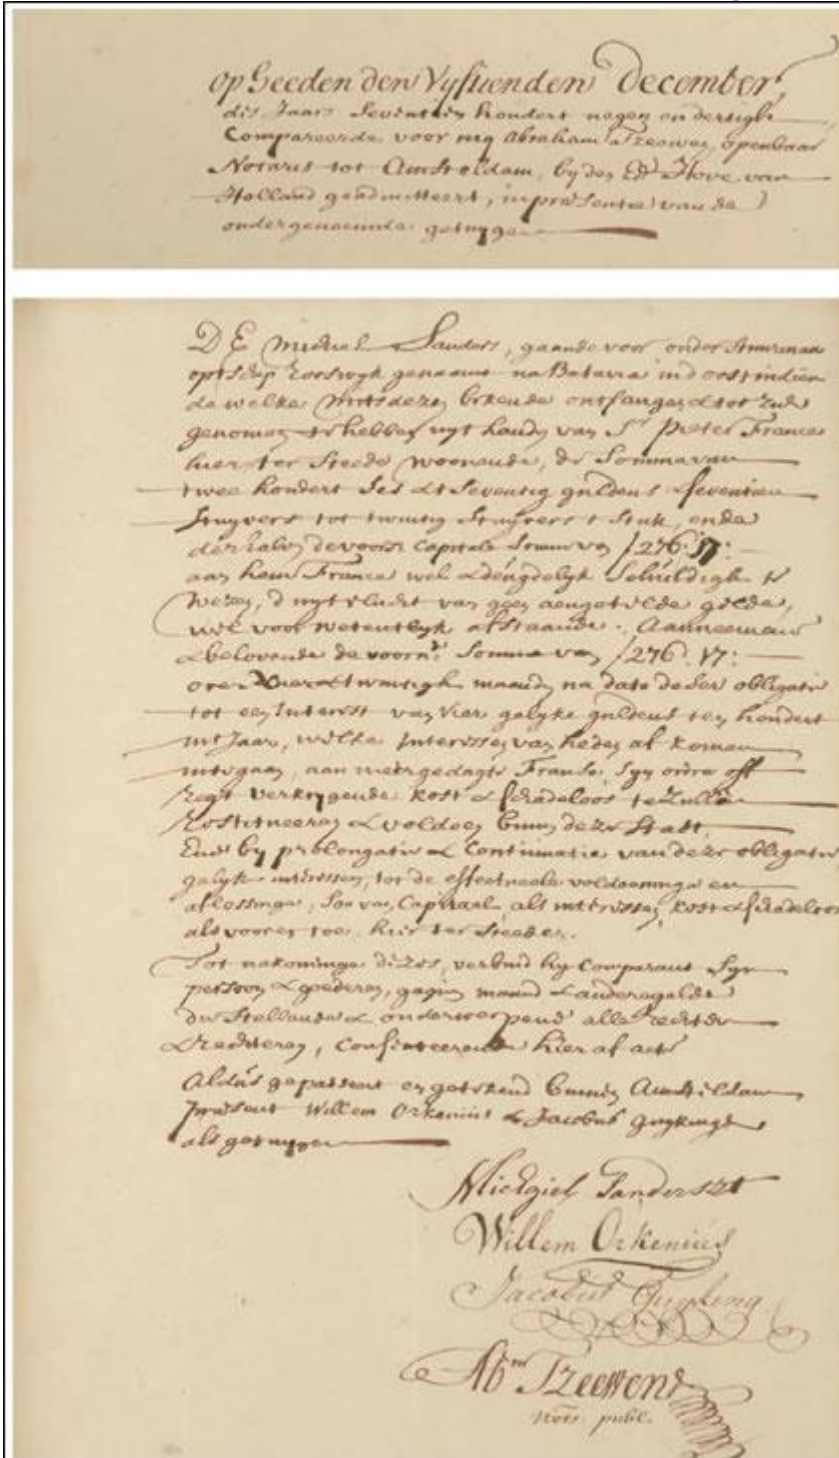 op Heeden den Vijftienden December,
dis Jaars Seventien hondert negen en dertigh
Compareerde voor mij Abraham Tzeewen, openbaar
Notaris tot Amsteldam, bij den Ed. Hove van
Holland geadmitteert, in præsentie van de
ondergenoemde getuijge
D E Michiel Sanders, gaande voor onder Stuurman
opt schip Rooswijk genaamt na Batavia in d oostindien
de welke mits dezen bekende ontfangen & tot zich
genomen te hebben uijt handen van Sr. Pieter France
hier ter Steede woonende, de Somma van
twee hondert Ses & Seventig guldens & seventien
Stuyvers tot twintig Stuyvers t Stuk, ende
derhalven de voorn Capitale Somm van ƒ276:17:
aan hem France wel & deugdelijk Schuldigh te
Wezen, d uijtvlucht van geen aengetelde gelde,
wel voor wetentlijk afstaande. Aanneemende
& belovende de voorn. Somma van ƒ276:17:
over Vier & twintigh maanden na date deser obligatie
tot een Interest van vier gelyke guldens ten hondert
int Jaar, welke Interessen van heden af komen
in te gaan, aan meergedagte Franse, Syn ordre off
regt verkrygende kost & schadeloos te zulle
restitueeren & voldoen binnen deze Stadt.
Ende by prolongatie & Continuatie van deze obligatie
gelyk interessen, tot de effectueele voldoeninge en
aflossinge, Soo van Capitaal, als interessen, kost & schadeloos
als vooren toe, hier ter Steeder.
Tot nakominge dezes, verbind hy Comparant Syn
persoon & goederen, gagien maand & andere gelde
die Stellende & onderwerpende alle rechten
& rechteren, Consenteerende hier af acte
Aldus gepasseert en getekend binnen Amsteldam
present Willem Orkenius & Jacobus
als getuygen
Michgiel Sanderszt
Willem Orkenius
Jacobus
Abm Tzeewen
Nots. publ.